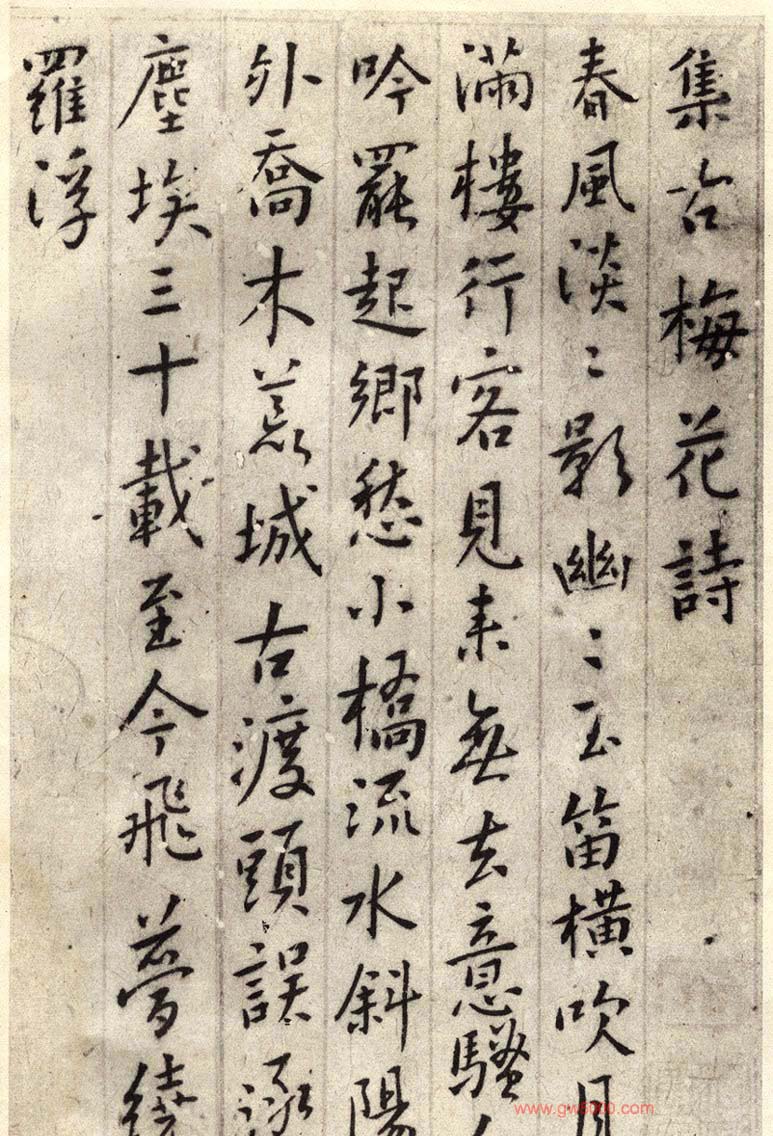 集古梅花詩
春風淡〻影幽〻玉笛橫吹月
滿樓行客見来無去意騷
吟罷起鄉愁小橋流水斜陽
外喬木荒城古渡頭誤
塵埃三十載至今飛夢繞
羅浮